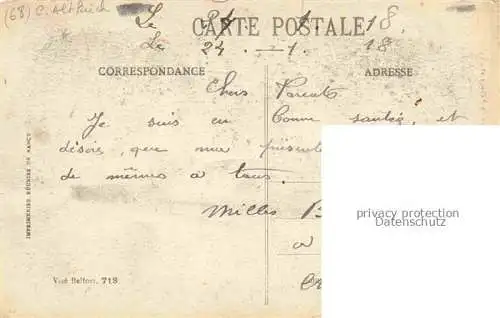 (68) C. Altkirch
CARTE POSTALE
Le 24 - 1 18
CORRESPONDANCE
ADRESSE
Chers Parents
Je suis en bonne santée, et
désire, que ma présente
de mêmes a tous.
Milles B
a
IMPRIMERIES RÉUNIES DE NANCY
Visé Belfort. 718
privacy protection
Datenschutz